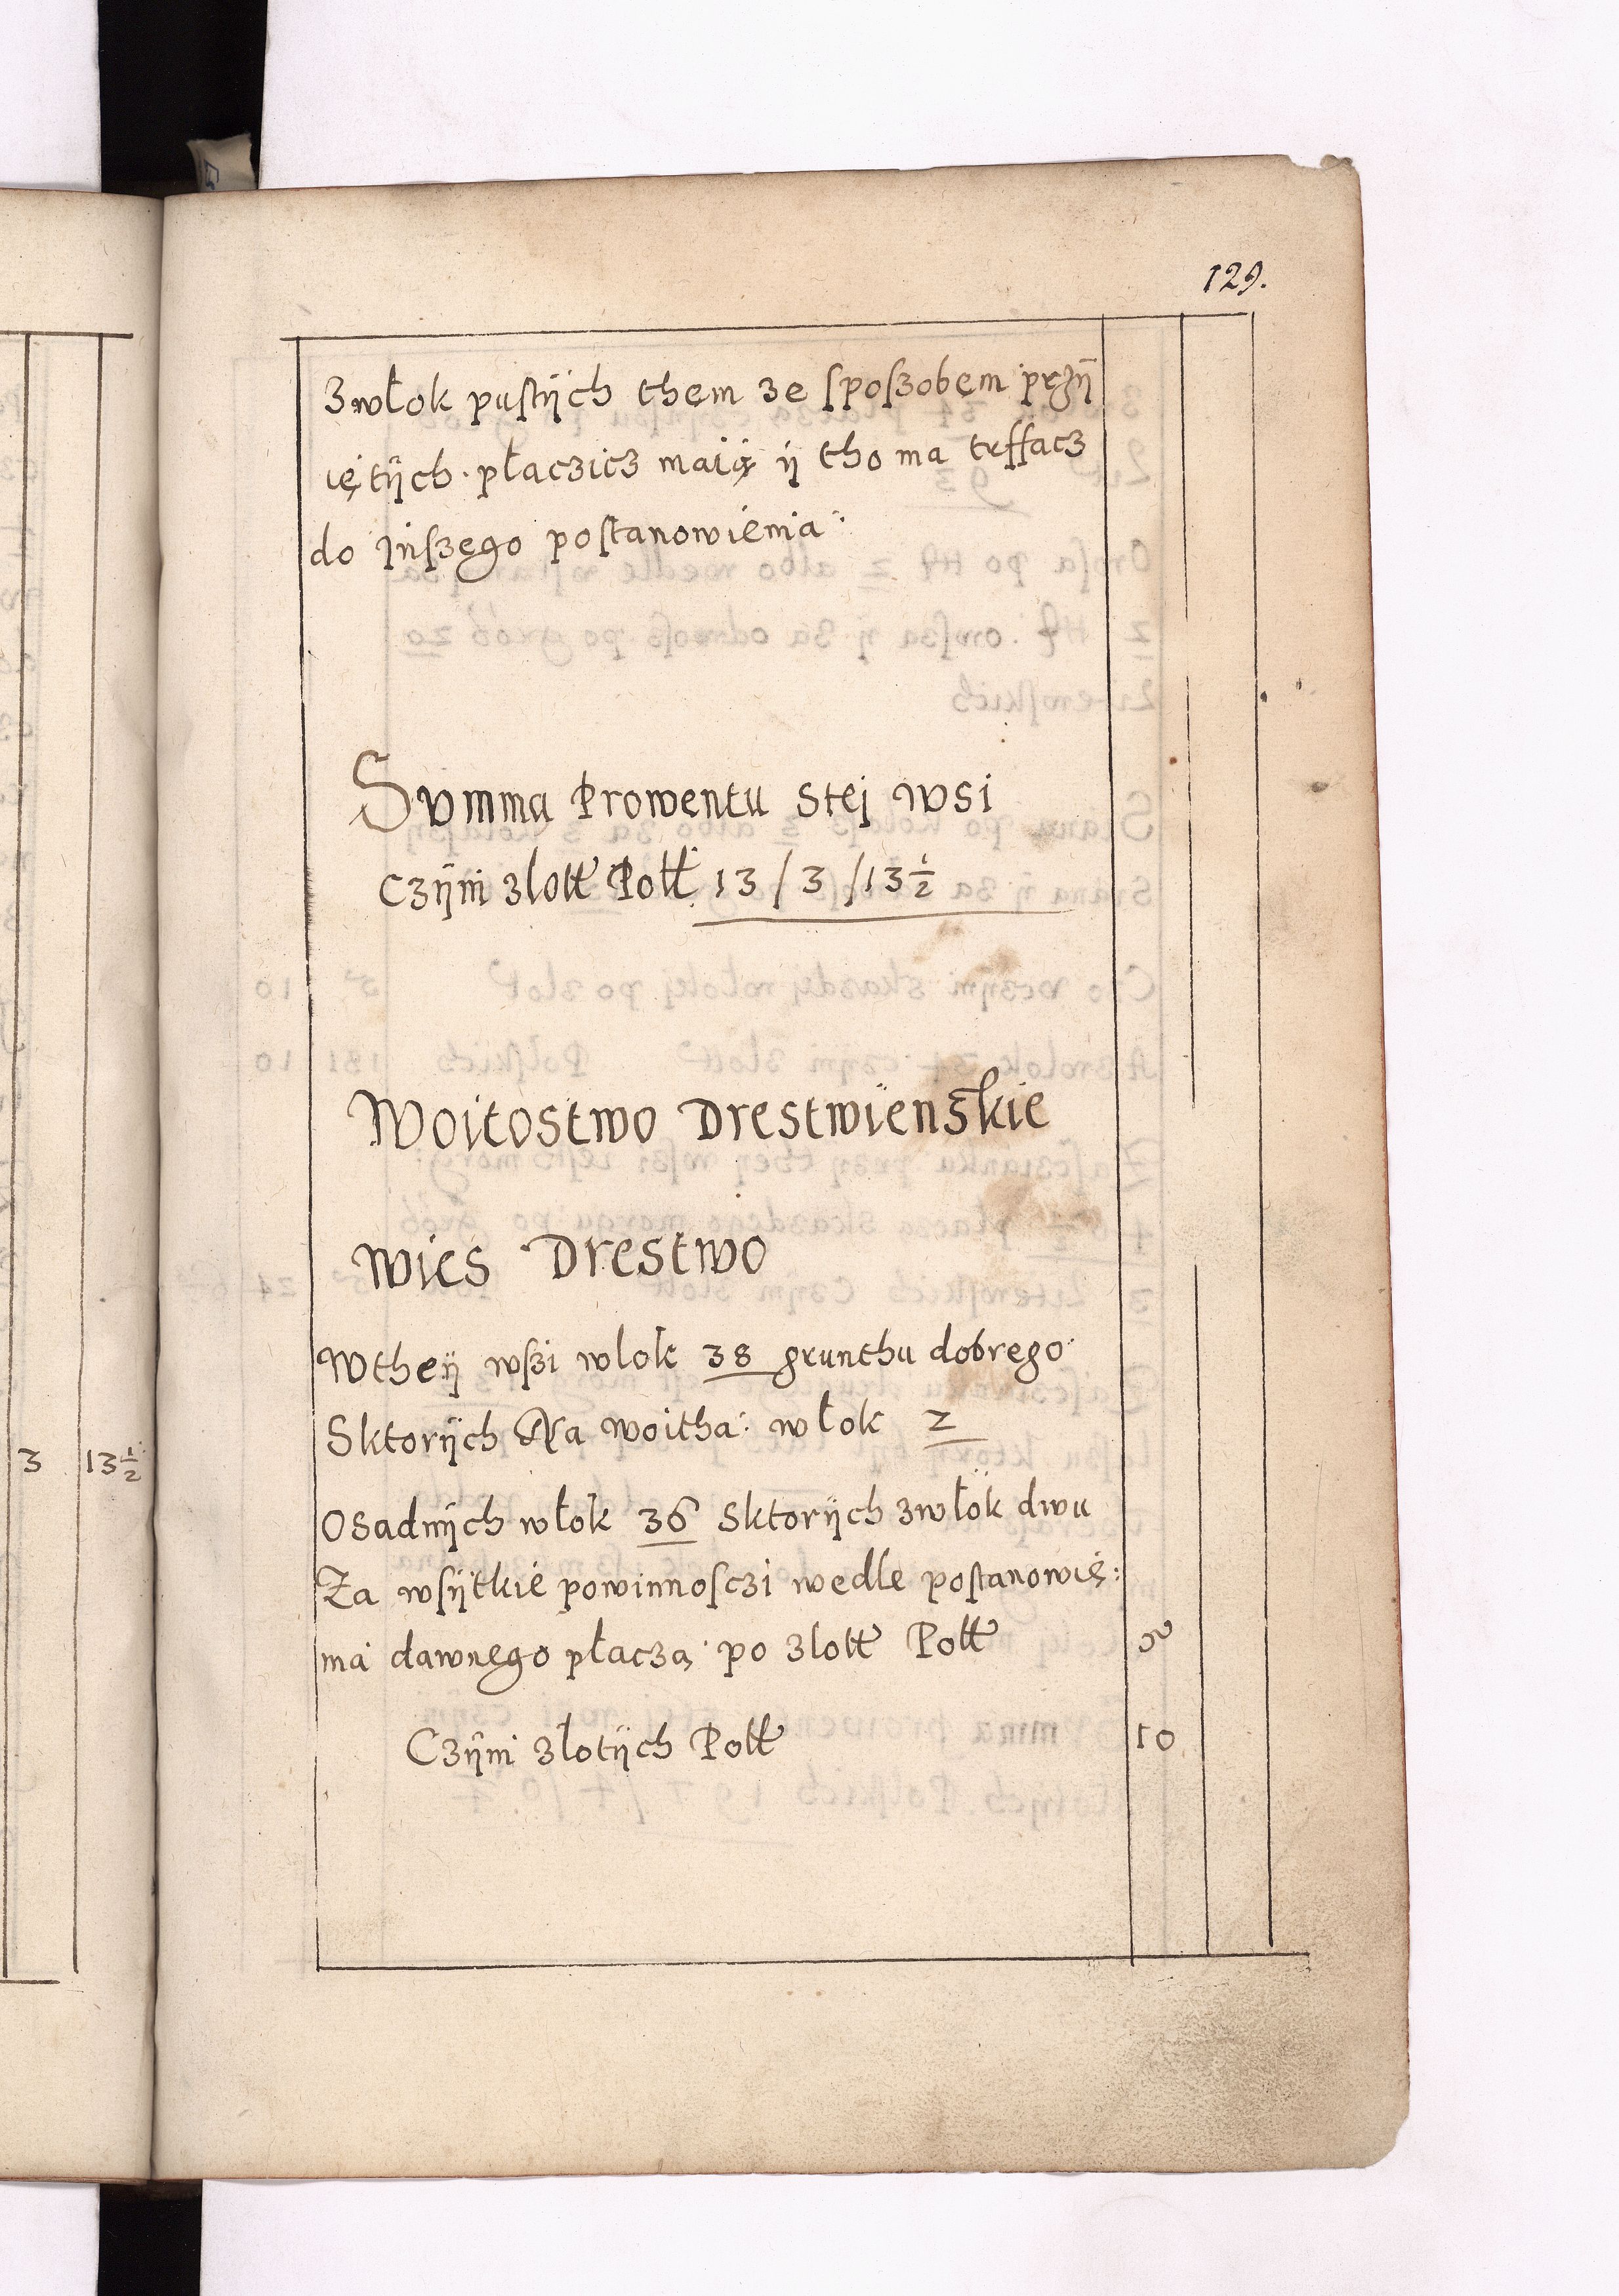 129.
Zwłok pustÿch them ze sposzobem przÿ
iętÿch płaczicz maią ÿ tho ma trffacz
do Jnszego postanowienia
Summa Prowentu stej wsi
Czÿni zlott Poll 13 / 3 / 13 1/2
Woitostwo Drestwienskie
Wies Drestwo
Wtheÿ wszi wlok 38 grunthu dobrego
Sktorÿch Na woitha włok 2
3 13 1/2
Osadnÿch włok 36 Sktorÿch zwłok dwu
Za wsÿtkie powinnosczi wedle postanowię:
nia dawnego płaczą po zlott Poll 5
Czÿni złotÿch Poll 10